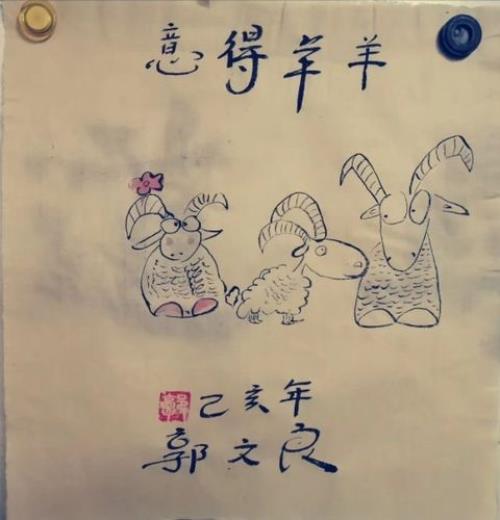 意得羊羊
己亥年
郭文良